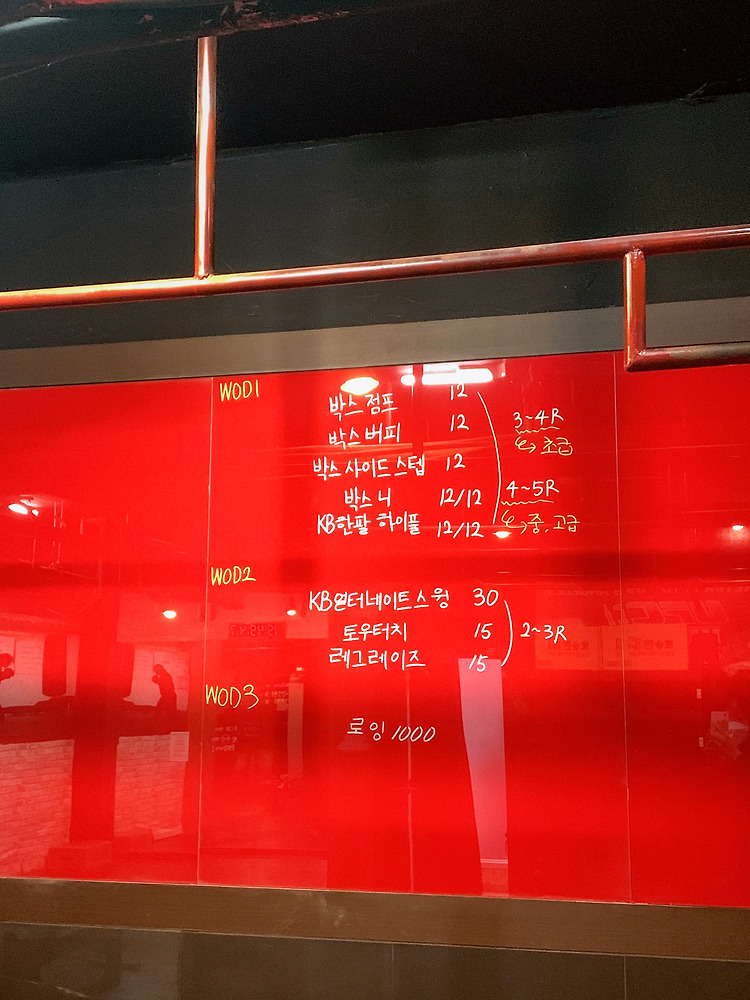 WOD1
박스 점프 12
박스 버피 12
박스 사이드 스텝 12
박스 니 12/12
KB한팔 하이풀 12/12
3~4R
↳ 초급
4~5R
↳ 중, 고급
WOD2
KB얼터네이트스윙 30
토우터치 15
레그레이즈 15
2~3R
WOD3
로잉 1000